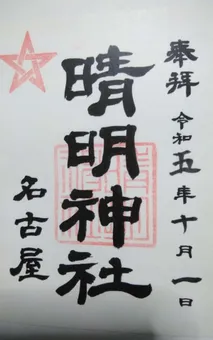 奉拝
令和五年十月一日
晴明神社
名古屋